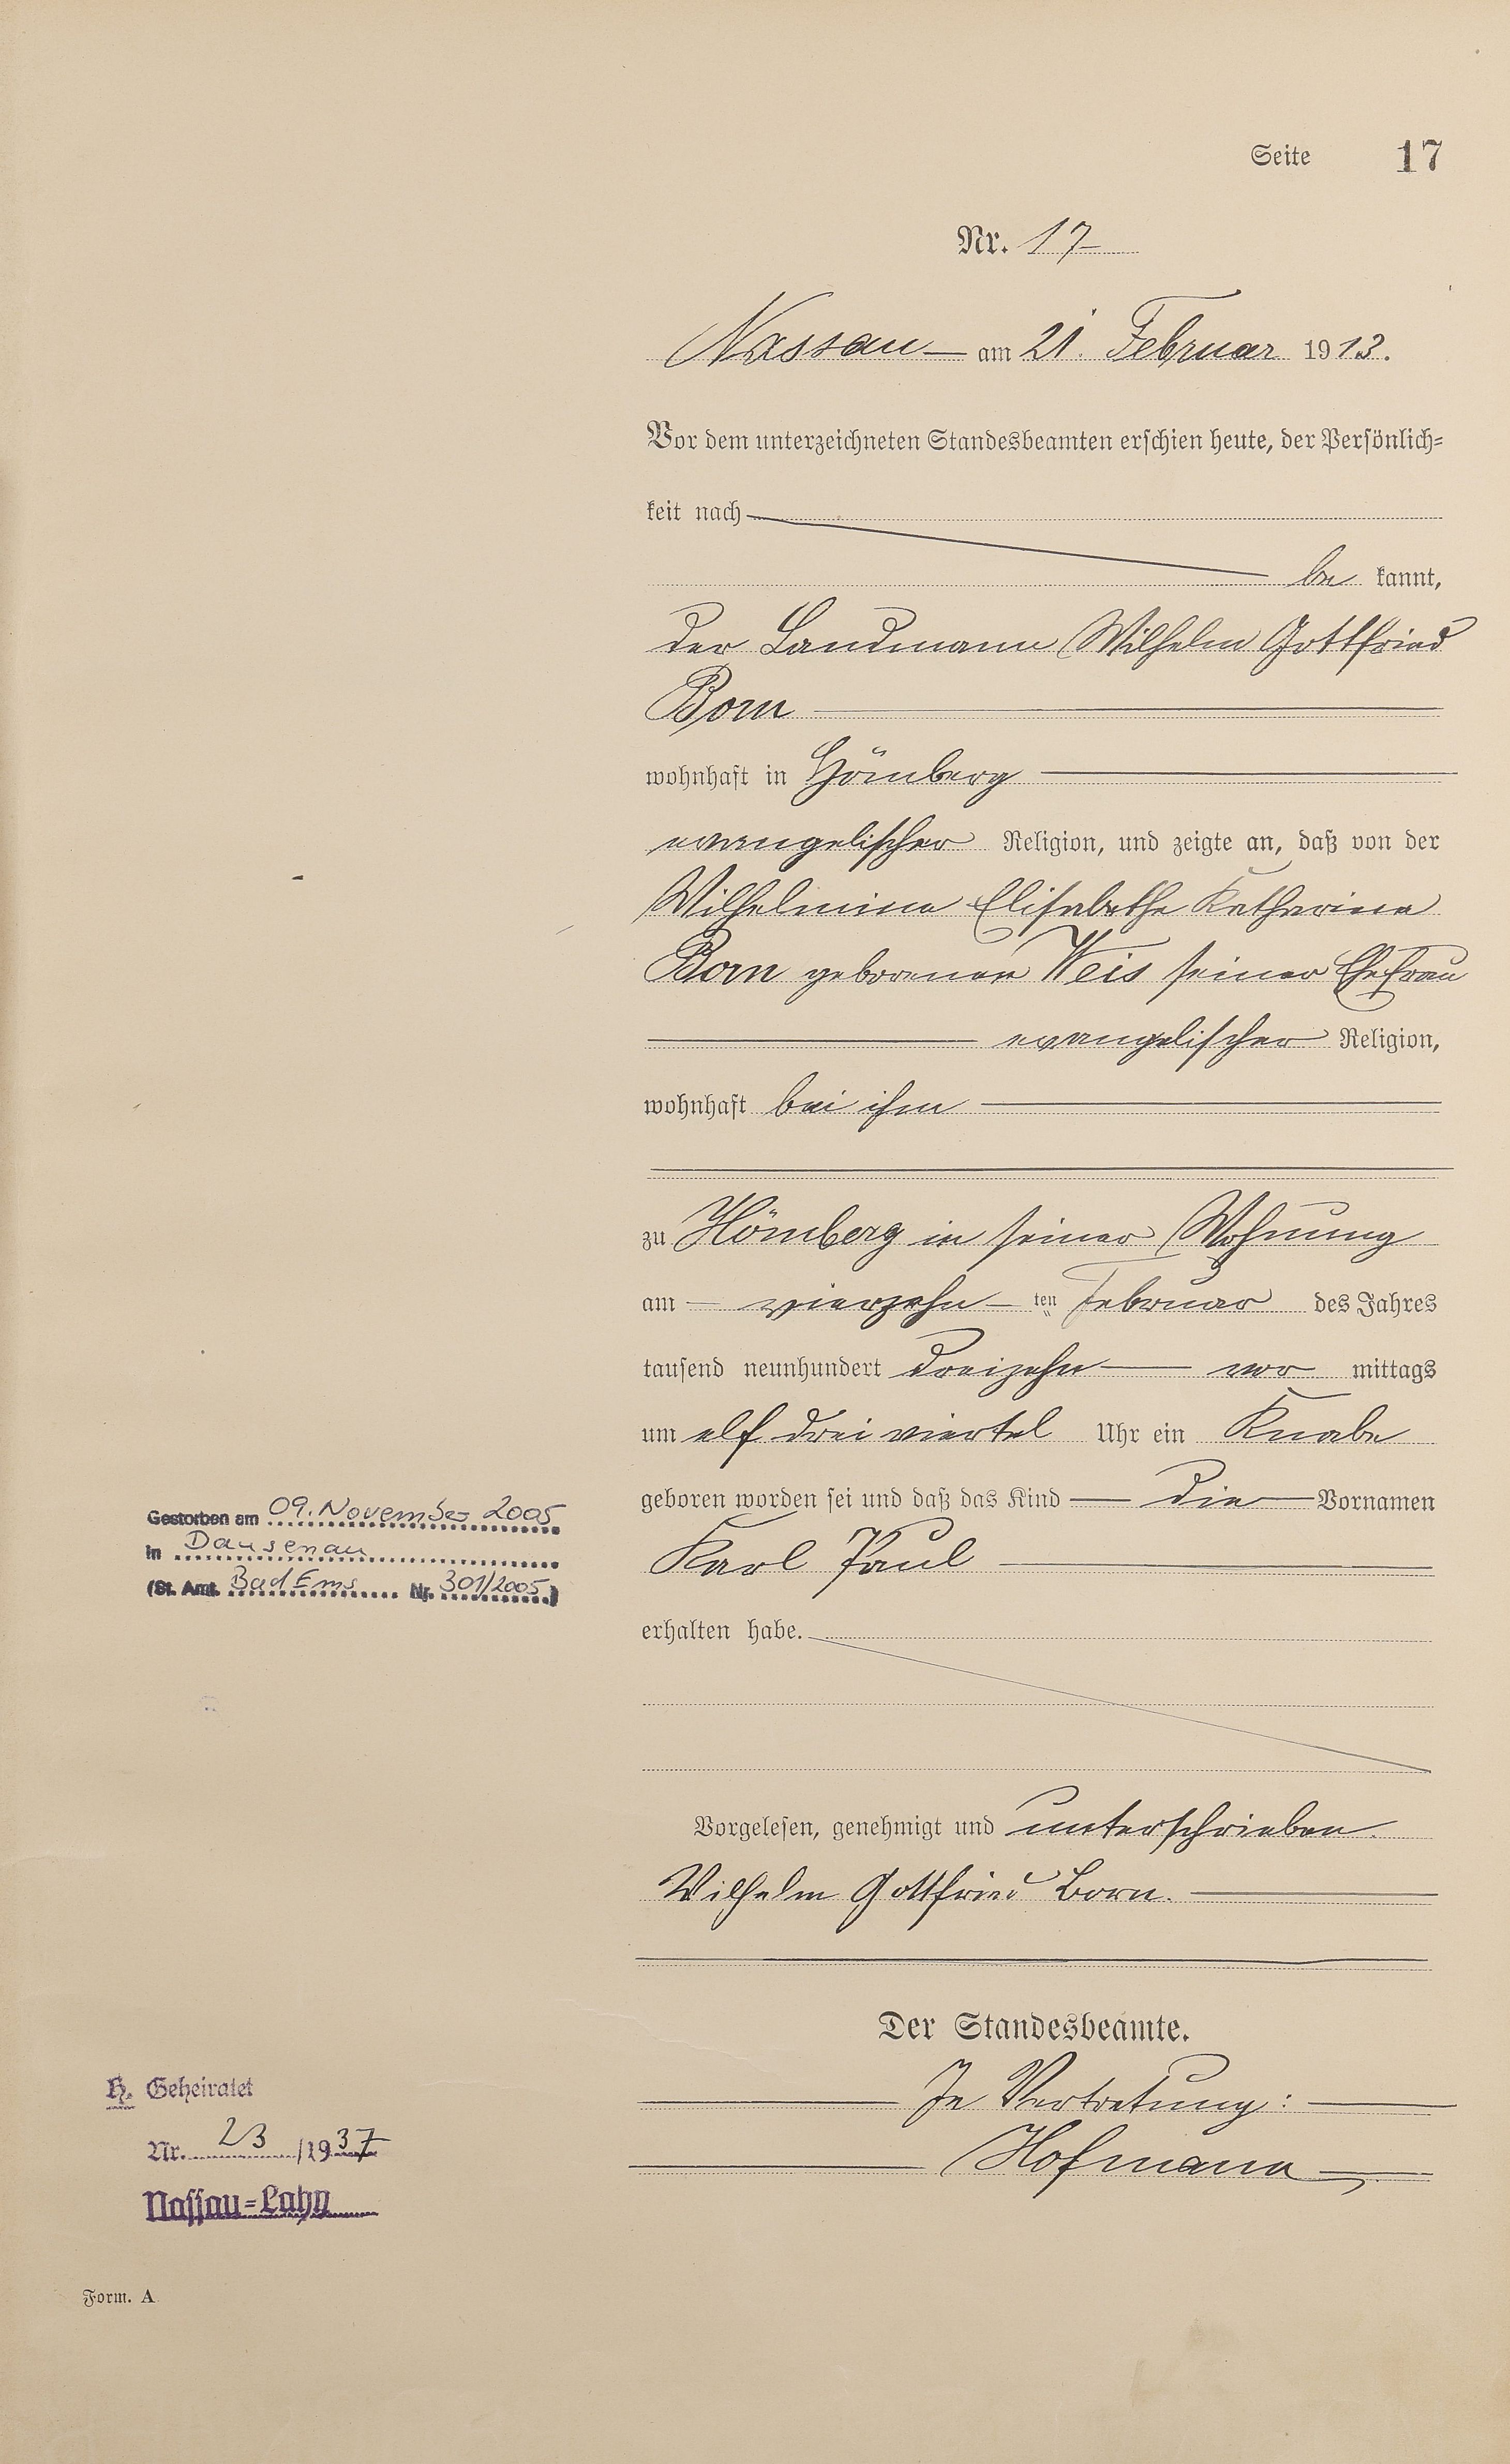 Seite 17
Nr. 17
Nassau am 21. Februar 1913.
Vor dem unterzeichneten Standesbeamten erschien heute, der Persönlich-
keit nach
be kannt,
der Landmann Wilhelm Gottfried
Born
wohnhaft in Hömberg
evangelischer Religion, und zeigte an, daß von der
Wilhelmine Elisabethe Katharina
Born geborenen Weis seiner Ehefrau
evangelischer Religion,
wohnhaft bei ihm
zu Hömberg in seiner Wohnung
am vierzehn ten Februar des Jahres
tausend neunhundert dreizehn vor mittags
um elf drei viertel Uhr ein Knabe
geboren worden sei und daß das Kind die Vornamen
Karl Paul
erhalten habe.
Vorgelesen, genehmigt und unterschrieben.
Wilhelm Gottfried Born.
Der Standesbeamte.
In Vertretung:
Hofmann
Gestorben am 09. November 2005
in Dausenau
(St. Amt. Bad Ems Nr. 301/2005)
H. Geheiratet
Nr. 23 /1937
Nassau-Lahn
Form. A